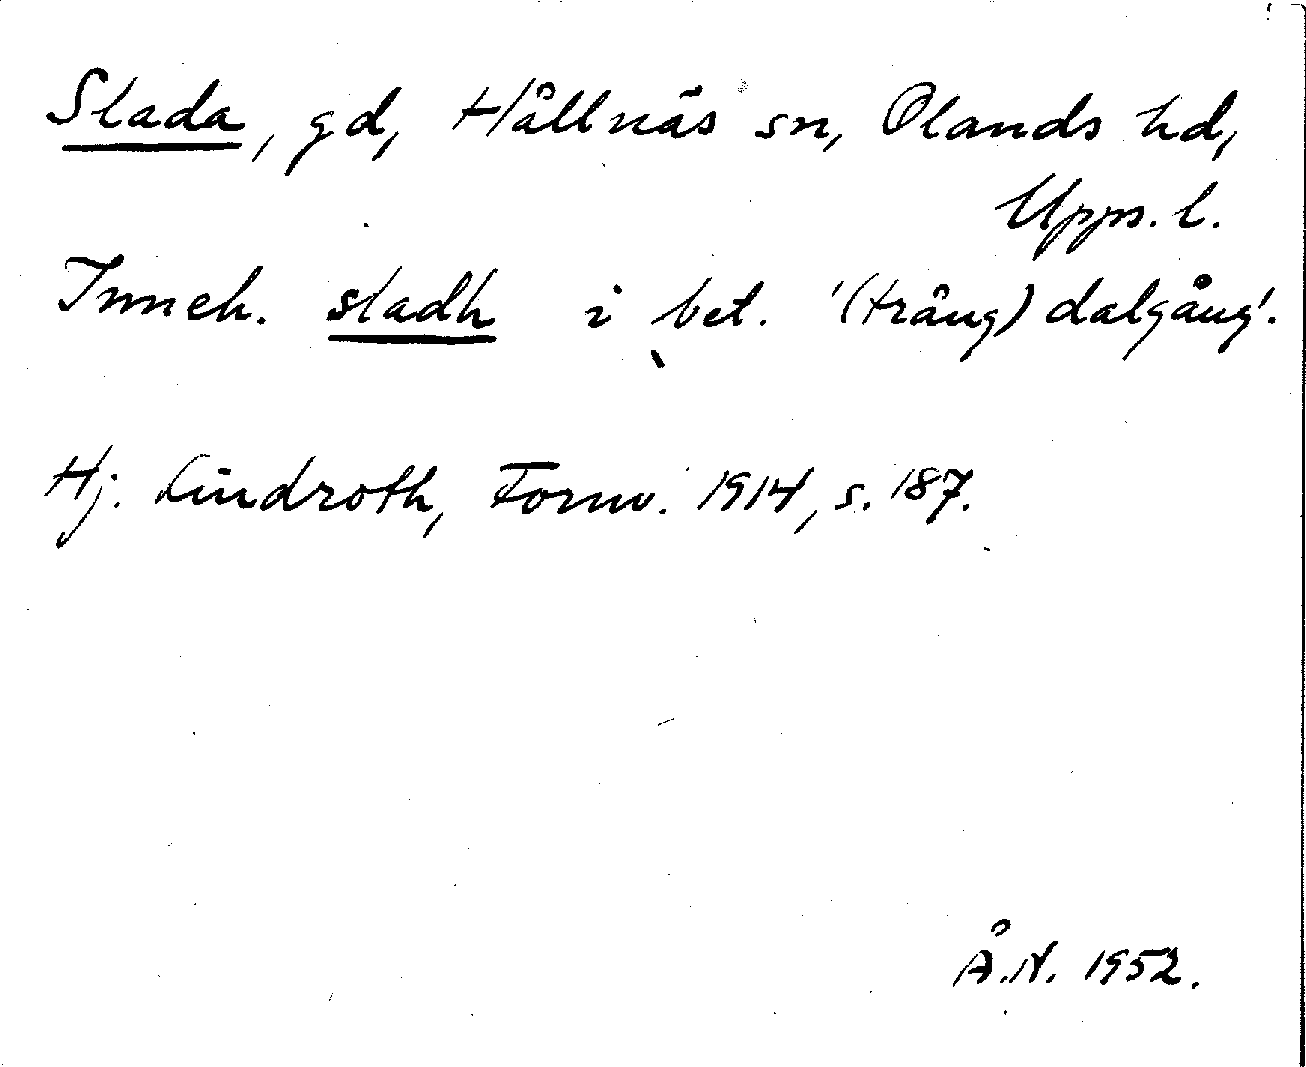 Slada, gd, Hållnäs sn, Olands hd,
Upps. l.
Inneh. sladh i bet. '(trång) dalgång'.
Hj. Lindroth, Fornv. 1914, s. 187.
Å.N. 1952.